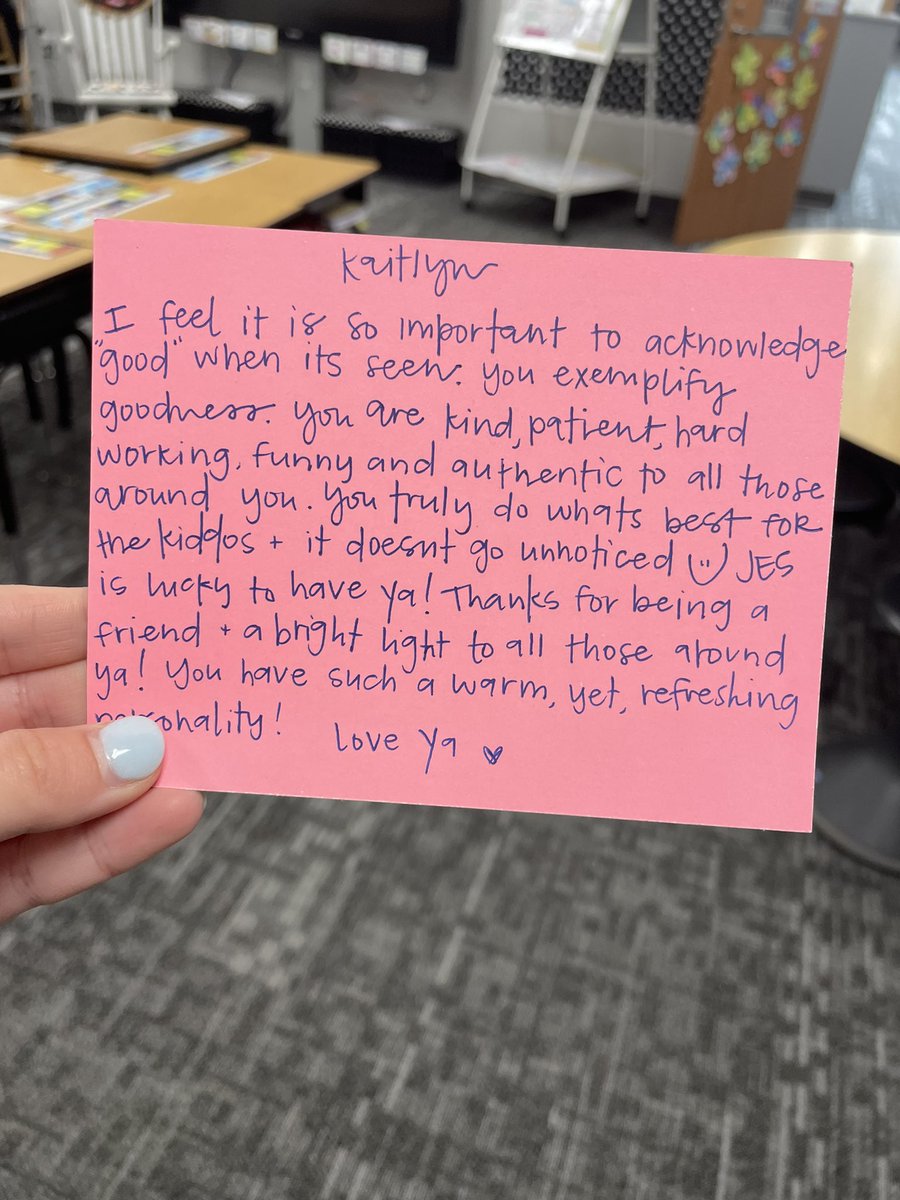 Kaitlyn
I feel it is so important to acknowledge
"good" when its seen. You exemplify
goodness. You are kind, patient, hard
working, funny and authentic to all those
around you. You truly do whats best for
the kiddos + it doesnt go unnoticed JES
is lucky to have ya! Thanks for being a
friend + a bright light to all those around
ya! You have such a warm, yet, refreshing
personality!
love ya